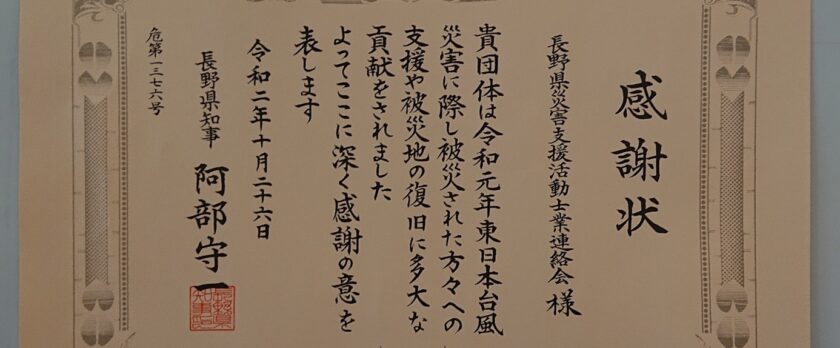 感謝状
長野県災害支援活動士業連絡会 様
貴団体は令和元年東日本台風
災害に際し被災された方々への
支援や被災地の復旧に多大な
貢献をされました
よってここに深く感謝の意を
表します
令和二年十月二十六日
長野県知事 阿部守一
危第一三七六号